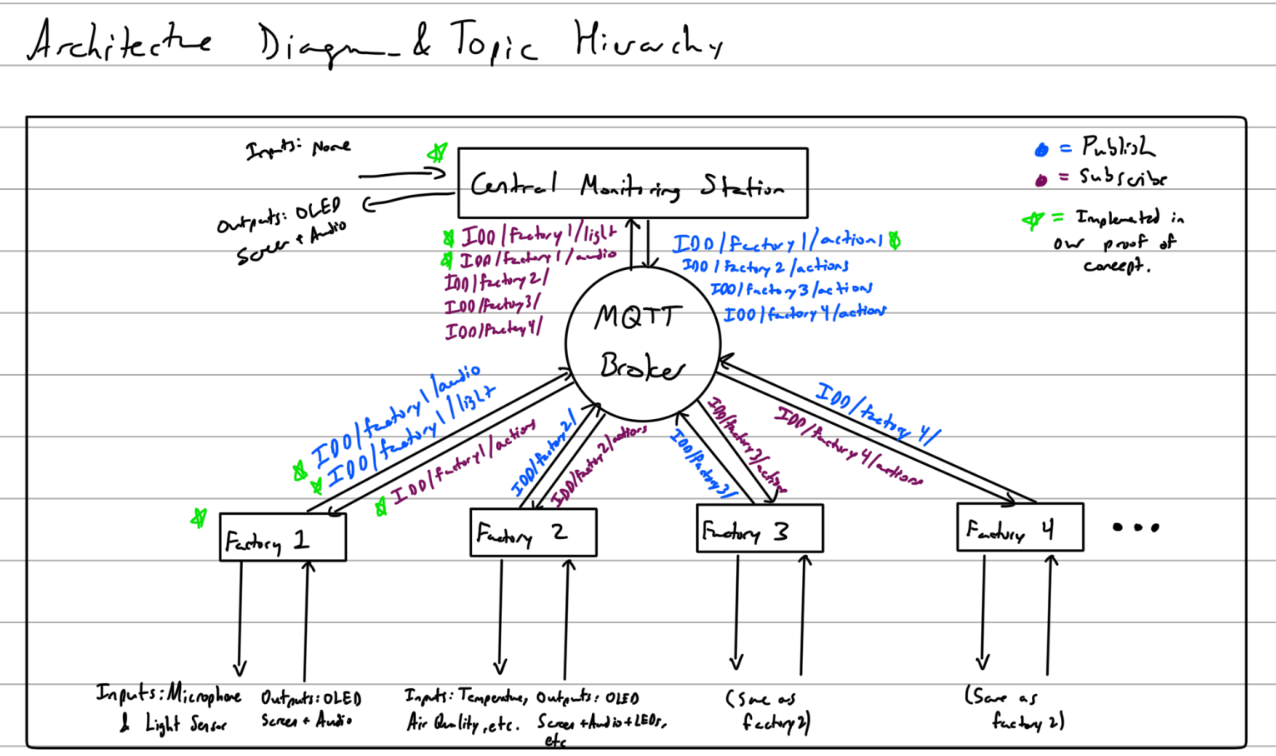 Architecture Diagram & Topic Hierarchy
Inputs: None
Outputs: OLED
Screen + Audio
Central Monitoring Station
= Publish
= Subscribe
= Implemented in
our proof of
concept.
IDD/factory1/light
IDD/factory1/audio
IDD/factory2/
IDD/factory3/
IDD/factory4/
IDD/factory1/actions
IDD/factory2/actions
IDD/factory3/actions
IDD/factory4/actions
MQTT
Broker
IDD/factory1/audio
IDD/factory1/light
IDD/factory1/actions
IDD/factory2/
IDD/factory2/actions
IDD/factory3/
IDD/factory3/actions
IDD/factory4/
IDD/factory4/actions
Factory 1
Factory 2
Factory 3
Factory 4
...
Inputs: Microphone
& Light Sensor
Outputs: OLED
Screen + Audio
Inputs: Temperature,
Air Quality, etc.
Outputs: OLED
Screen + Audio + LEDs,
etc
(Same as
factory 2)
(Same as
factory 2)